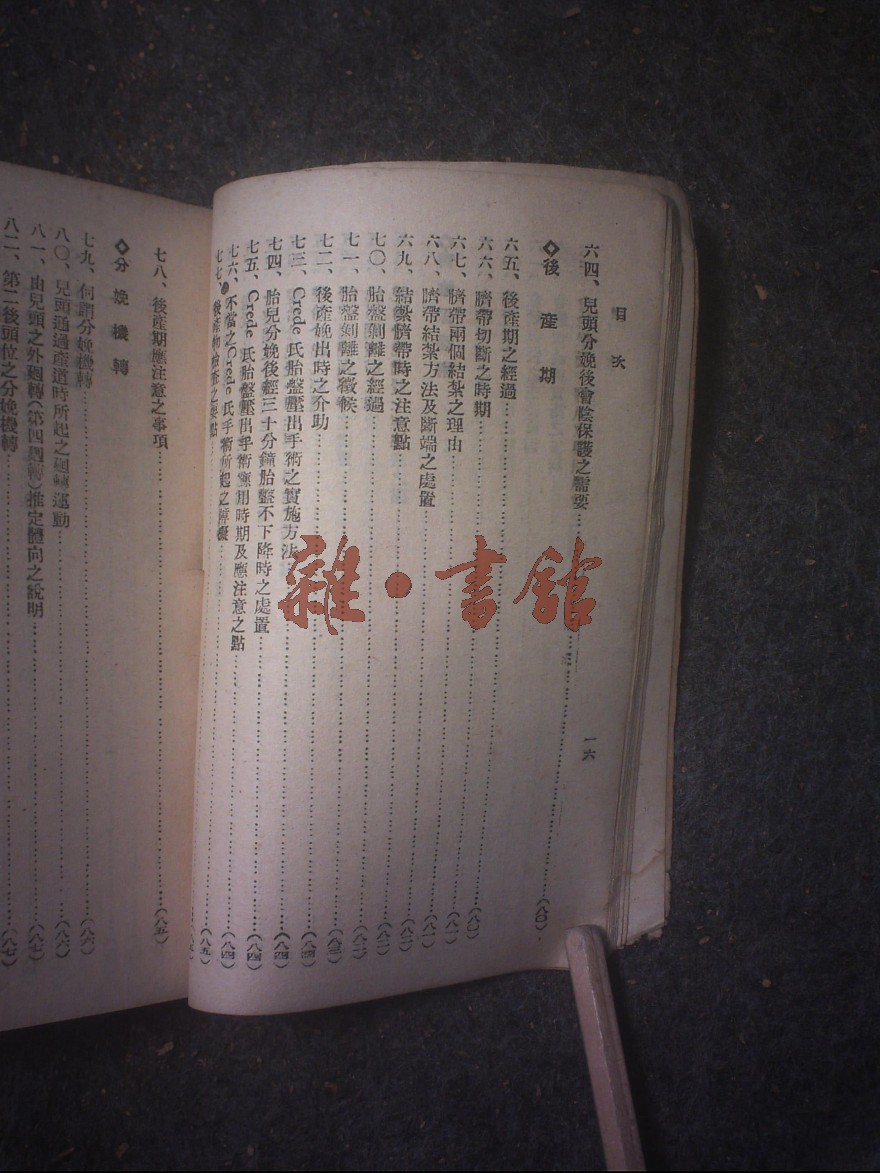 目次
一六
六四、兒頭分娩後會陰保護之需要……（八〇）
◇後產期
六五、後產期之經過……（八〇）
六六、臍帶切斷之時期……（八〇）
六七、臍帶兩個結紮之理由……（八一）
六八、臍帶結紮方法及斷端之處置……（八一）
六九、結紮臍帶時之注意點……（八二）
七〇、胎盤剝離之經過……（八二）
七一、胎盤剝離之徵候……（八二）
七二、後產娩出時之介助……（八三）
七三、Crede氏胎盤壓出手術之實施方法……（八四）
七四、胎兒分娩後經三十分鐘胎盤不下降時之處置……（八四）
七五、Crede氏胎盤壓出手術應用時期及應注意之點……（八四）
七六、不當之Crede氏手術所起之障礙……（八四）
七七、後產物檢查之要點……（八五）
七八、後產期應注意之事項……（八五）
◇分娩機轉
七九、何謂分娩機轉……（八六）
八〇、兒頭通過產道時所起之迴轉運動……（八六）
八一、由兒頭之外迴轉（第四迴轉）推定體向之說明……（八七）
八二、第二後頭位之分娩機轉……（八七）
雜·書館